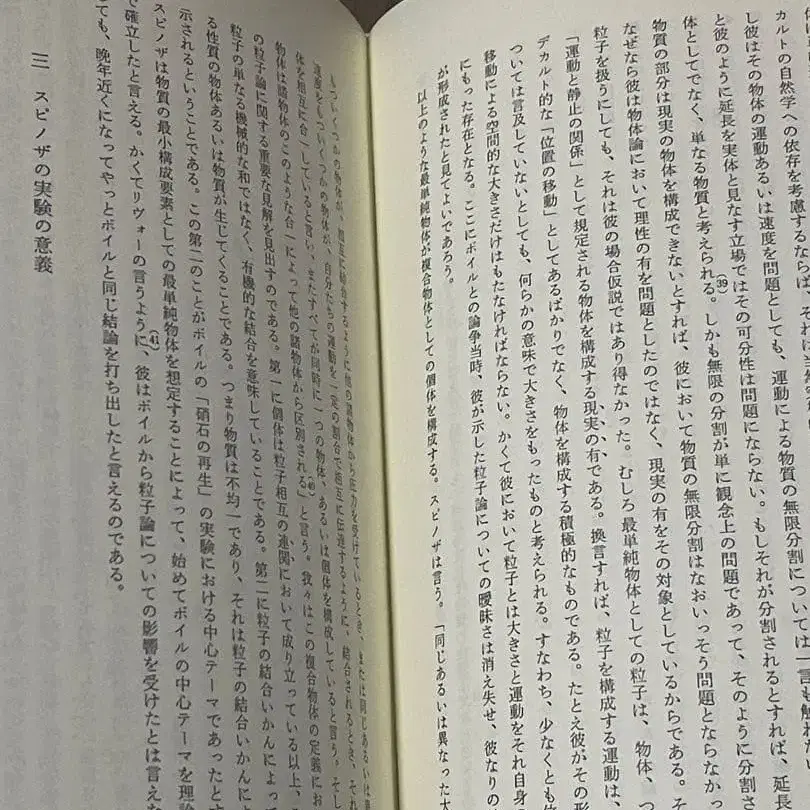 カルトの自然学への依存を考慮するならば、それは
し彼はその物体の運動あるいは速度を問題としても、運動による物質の無限分割については一言も触れ
と彼のように延長を実体と見なす立場ではその可分性は問題にならない。もしそれが分割されるとすれば、延長
体としてでなく、単なる物質と考えられる。(39)しかも無限の分割が単に観念上の問題であって、そのように分割さ
物質の部分は現実の物体を構成できないとすれば、彼において物質の無限分割はなおいっそう問題とならなか
なぜなら彼は物体論において理性の有を問題としたのではなく、現実の有をその対象としているからである。
粒子を扱うにしても、それは彼の場合仮説ではあり得なかった。むしろ最単純物体としての粒子は、物体、つ
「運動と静止の関係」として規定される物体を構成する現実の有である。換言すれば、粒子を構成する運動は
デカルト的な「位置の移動」としてあるばかりでなく、物体を構成する積極的なものである。たとえ彼がその形
ついては言及していないとしても、何らかの意味で大きさをもったものと考えられる。すなわち、少なくとも
移動による空間的な大きさだけはもたなければならない。かくて彼において粒子とは大きさと運動をそれ自身
にもった存在となる。ここにボイルとの論争当時、彼が示した粒子論についての曖昧さは消え失せ、彼なりの
が形成されたと見てよいであろう。
以上のような最単純物体が複合物体としての個体を構成する。スピノザは言う。「同じあるいは異なった大
もついくつかの物体が、相互に結合するように他の諸物体から圧力を受けているとき、または同じあるいは
速度をもついくつかの物体が、自分たちの運動を一定の割合で相互に伝達するように、結合されるとき、それ
体を相互に合一していると言い、またすべてが同時に一つの物体、あるいは個体を構成していると言う。そし
物体は諸物体のこのような合一によって他の諸物体から区別される」(40)と言う。我々はこの複合物体の定義にお
の粒子論に関する重要な見解を見出すのである。第一に個体は粒子相互の連関において成り立っている以上、
粒子の単なる機械的な和ではなく、有機的な結合を意味していることである。第二に粒子の結合いかんによって
る性質の物体あるいは物質が生じてくることである。つまり物質は不均一であり、それは粒子の結合いかんに
示されるということである。この第二のことがボイルの「硝石の再生」の実験における中心テーマであったとす
スピノザは物質の最小構成要素としての最単純物体を想定することによって、始めてボイルの中心テーマを理論
で確立したと言える。かくてリヴォーの言うように、(41)彼はボイルから粒子論についての影響を受けたとは言えな
ても、晩年近くになってやっとボイルと同じ結論を打ち出したと言えるのである。
三 スピノザの実験の意義